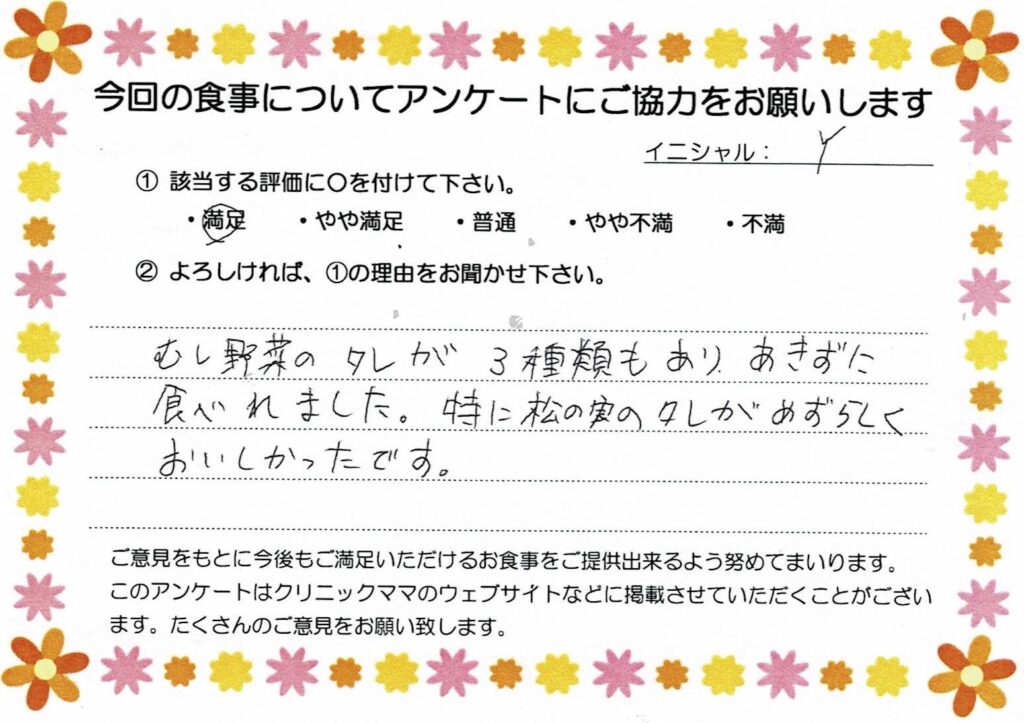 今回の食事についてアンケートにご協力をお願いします
イニシャル： Y
① 該当する評価に〇を付けて下さい。
・満足 ・やや満足 ・普通 ・やや不満 ・不満
② よろしければ、①の理由をお聞かせ下さい。
むし野菜の タレが 3種類も あり、あきずに
食べれました。特に松の実のタレがめずらしく
おいしかったです。
ご意見をもとに今後もご満足いただけるお食事をご提供出来るよう努めてまいります。
このアンケートはクリニックママのウェブサイトなどに掲載させていただくことがござい
ます。たくさんのご意見をお願い致します。